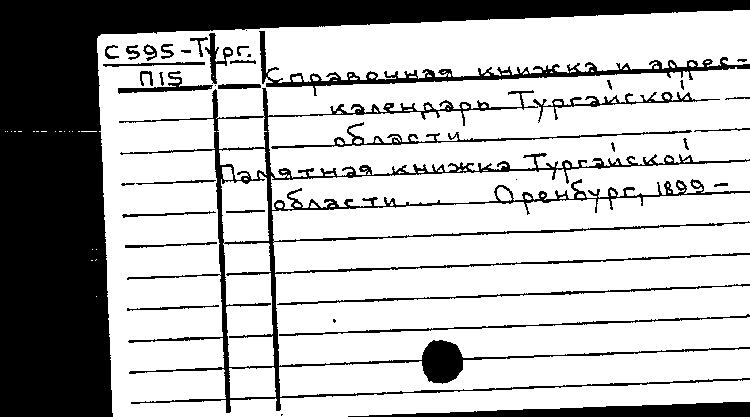 С 595-Тург.
П15
Справочная книжка и адрес-
календарь Тургайской
области
Памятная книжка Тургайской
области.... Оренбург, 1899-